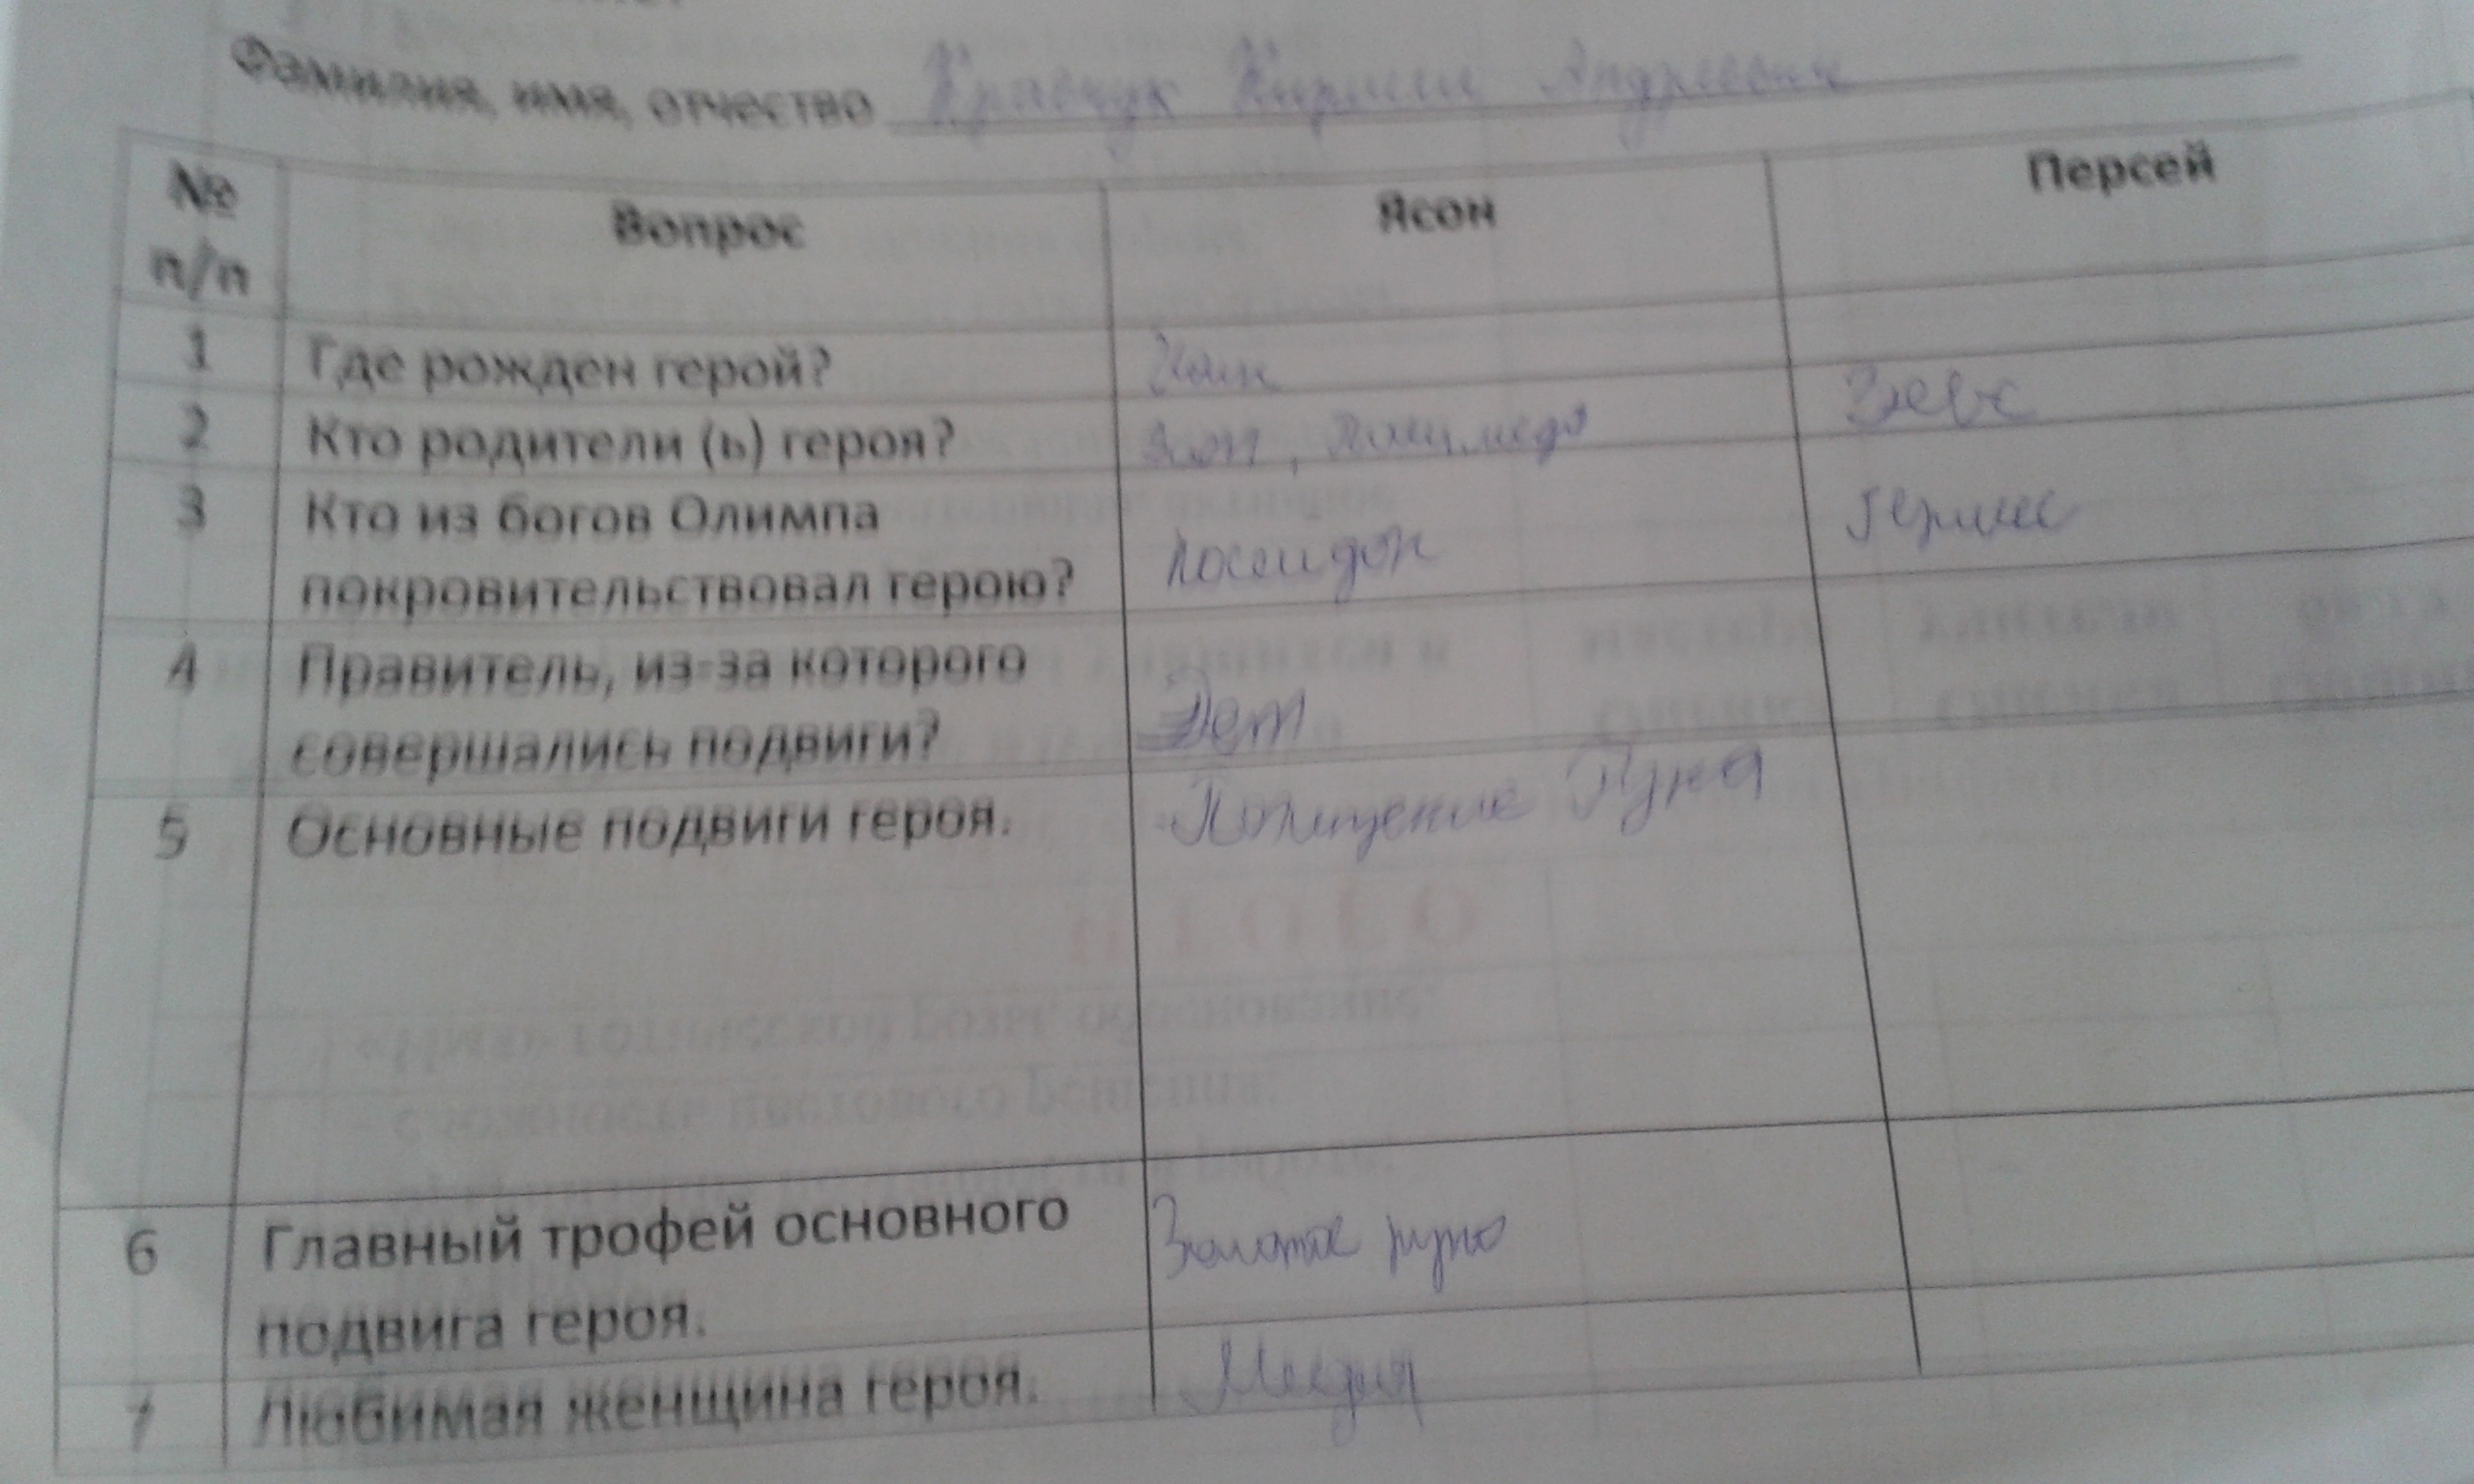 Фамилия, имя, отчество Кравчук Кирилл Андреевич
№ п/п Вопрос Ясон Персей
1 Где рожден герой?
2 Кто родители (ь) героя? Полимеда Зевс
3 Кто из богов Олимпа
покровительствовал герою? Посейдон Гермес
4 Правитель, из-за которого
совершались подвиги?
5 Основные подвиги героя. Похищение Руна
6 Главный трофей основного Золотое руно
подвига героя.
7 Любимая женщина героя. Медея